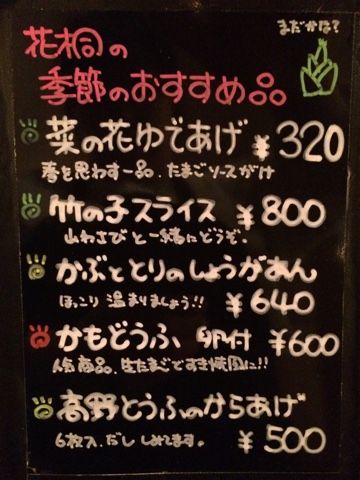 まだかな？
花桐の
季節のおすすめ品
菜の花ゆであげ ¥320
春を思わす一品、たまごソースがけ
竹の子スライス ¥800
山わさびと一緒にどうぞ。
かぶととりのしょうがあん
ほっこり 温まりましょう!! ¥640
かもどうふ 卵付 ¥600
人気商品、生たまごですき焼風に!!
高野とうふのからあげ
6枚入、だし しめてます。 ¥500